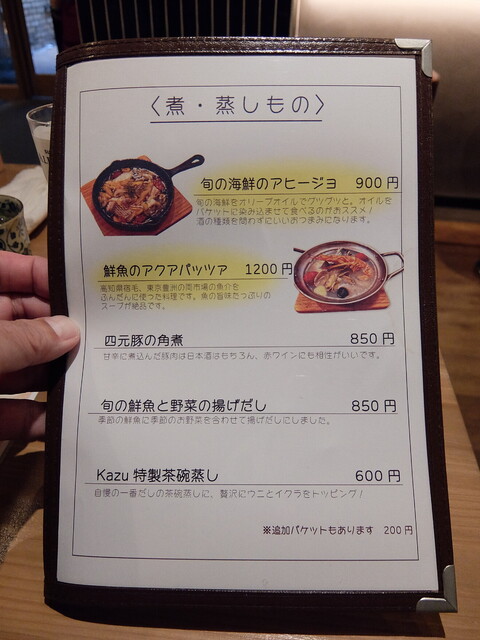 〈煮・蒸しもの〉
旬の海鮮のアヒージョ 900円
旬の海鮮をオリーブオイルでグツグツと。オイルを
バケットに染み込ませて食べるのがおススメ！
酒の種類を問わずにいいおつまみになります。
鮮魚のアクアパッツァ 1200円
高知県宿毛、東京豊洲の両市場の魚介を
ふんだんに使った料理です。魚の旨味たっぷりの
スープが絶品です。
四元豚の角煮 850円
甘辛に煮込んだ豚肉は日本酒はもちろん、赤ワインにも相性がいいです。
旬の鮮魚と野菜の揚げだし 850円
季節の鮮魚に季節のお野菜を合わせて揚げだしにしました。
Kazu 特製茶碗蒸し 600円
自慢の一番だしの茶碗蒸しに、贅沢にウニとイクラをトッピング！
※追加バケットもあります 200円